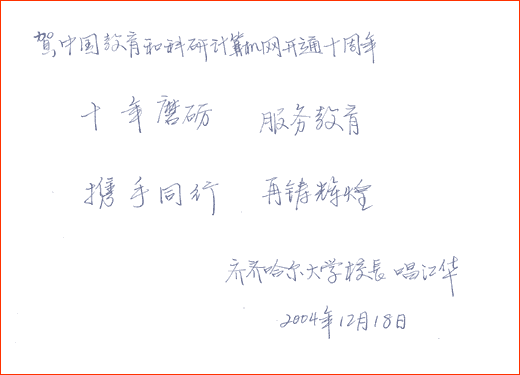 贺中国教育和科研计算机网开通十周年
十年磨砺 服务教育
携手同行 再铸辉煌
齐齐哈尔大学校长 唱江华
2004年12月18日